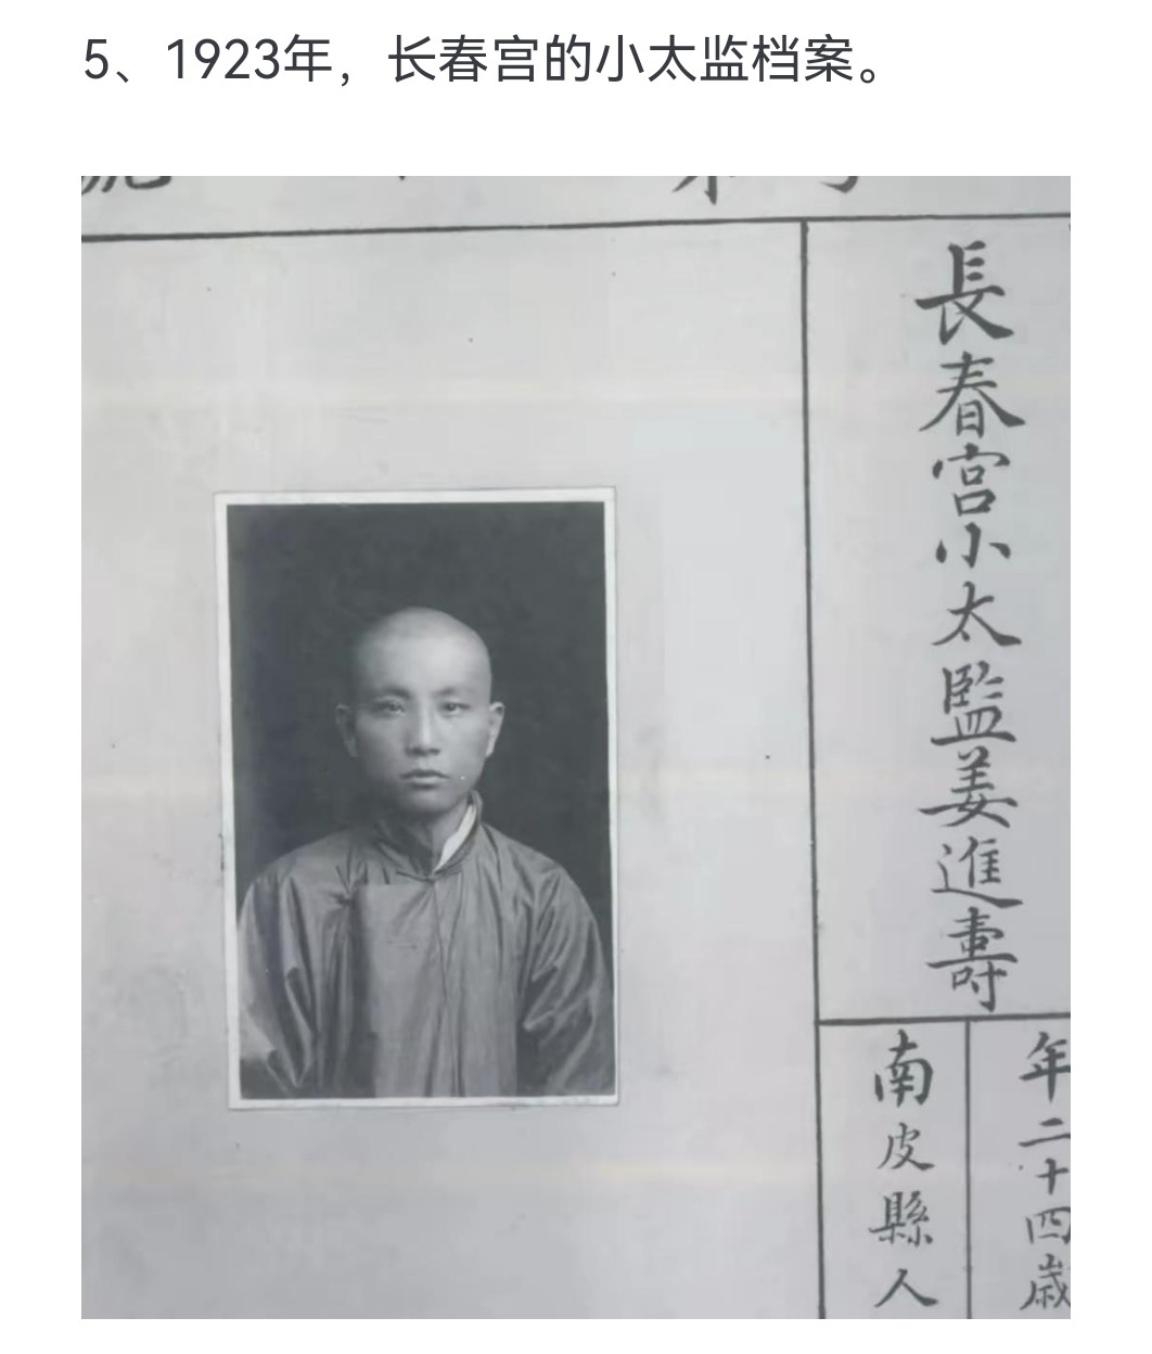 5、1923年，长春宫的小太监档案。
長春宮小太監姜進壽
年二十四歲
南皮縣人